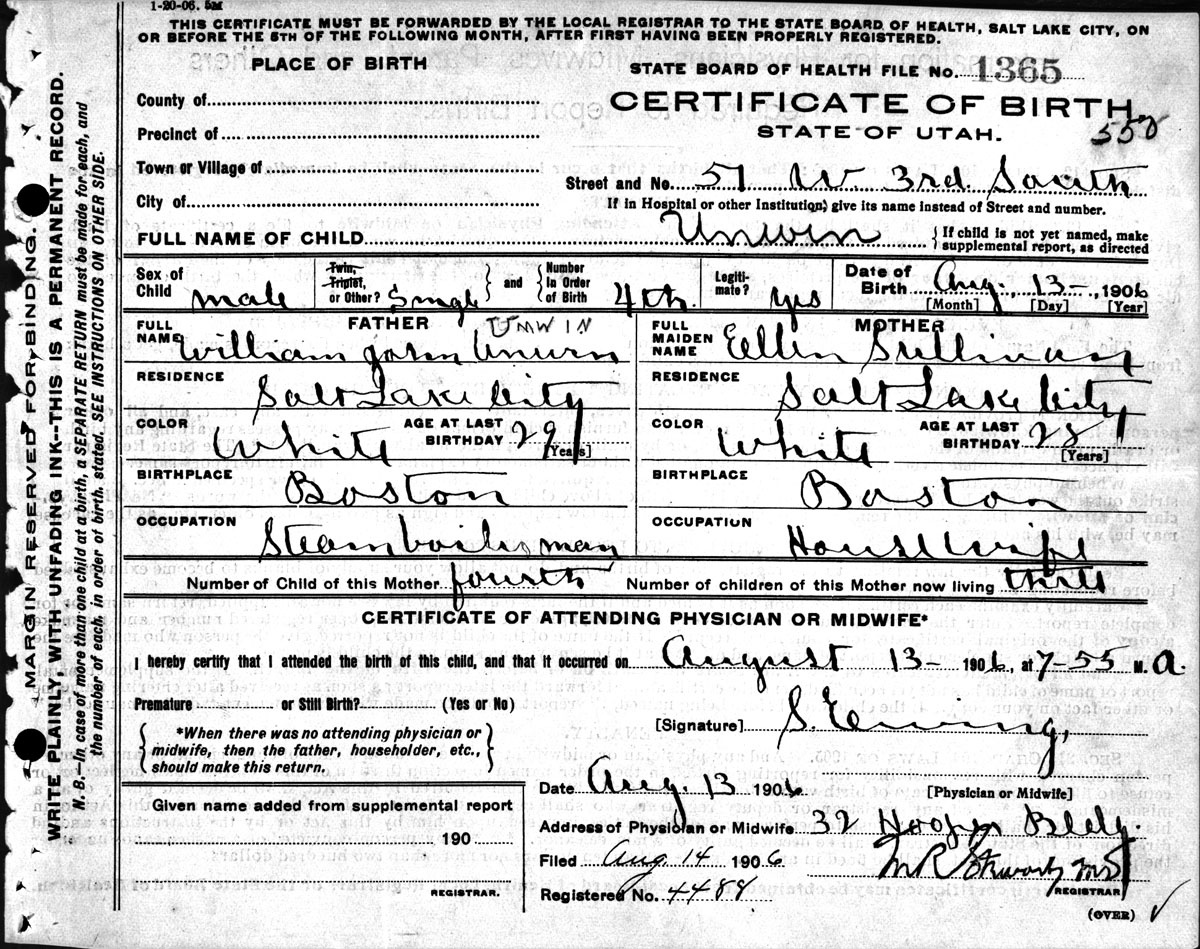 1-20-06. 5M
THIS CERTIFICATE MUST BE FORWARDED BY THE LOCAL REGISTRAR TO THE STATE BOARD OF HEALTH, SALT LAKE CITY, ON
OR BEFORE THE 5TH OF THE FOLLOWING MONTH, AFTER FIRST HAVING BEEN PROPERLY REGISTERED.
MARGIN RESERVED FOR BINDING.
WRITE PLAINLY, WITH UNFADING INK--THIS IS A PERMANENT RECORD.
N. B.—In case of more than one child at a birth, a SEPARATE RETURN must be made for each, and
the number of each, in order of birth, stated. SEE INSTRUCTIONS ON OTHER SIDE.
PLACE OF BIRTH
County of
Precinct of
Town or Village of
City of
STATE BOARD OF HEALTH FILE No. 1365
CERTIFICATE OF BIRTH
STATE OF UTAH. 550
Street and No. 51 W 3rd South
If in Hospital or other Institution, give its name instead of Street and number.
FULL NAME OF CHILD Unwin {If child is not yet named, make
supplemental report, as directed
Sex of Child male
Twin, Triplet, or Other? Single and Number In Order of Birth 4th
Legiti- mate? yes
Date of Birth Aug. 13-, 1906
[Month] [Day] [Year]
FATHER UMWIN
FULL NAME William John Unwin
RESIDENCE
Salt Lake City
COLOR White AGE AT LAST BIRTHDAY 29
[Years]
BIRTHPLACE Boston
OCCUPATION
Steamboiler man
MOTHER
FULL MAIDEN NAME Ellen Sullivan
RESIDENCE
Salt Lake City
COLOR White AGE AT LAST BIRTHDAY 28
[Years]
BIRTHPLACE Boston
OCCUPATION Housewife
Number of Child of this Mother fourth Number of children of this Mother now living three
CERTIFICATE OF ATTENDING PHYSICIAN OR MIDWIFE*
I hereby certify that I attended the birth of this child, and that it occurred on August 13- 1906, at 7-55 M. A.
Premature or Still Birth? (Yes or No)
*When there was no attending physician or
midwife, then the father, householder, etc.,
should make this return.
[Signature] S. Ewing,
Date Aug. 13 1906 [Physician or Midwife]
Address of Physician or Midwife. 32 Hooper Bldg.
Given name added from supplemental report
190
REGISTRAR.
Filed Aug 14 1906
REGISTRAR
Registered No. 4488
(OVER)